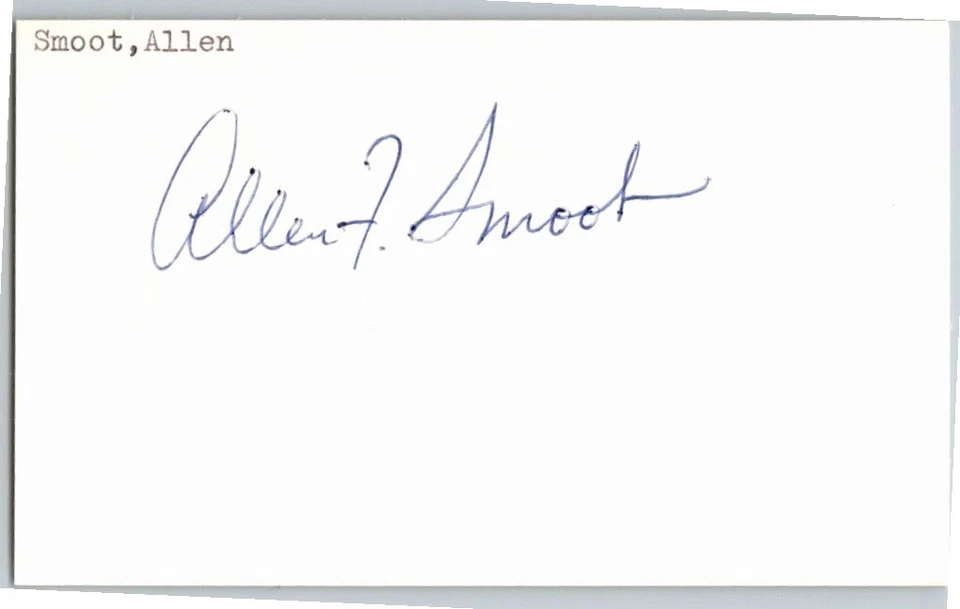 Smoot,Allen
Allen F. Smoot